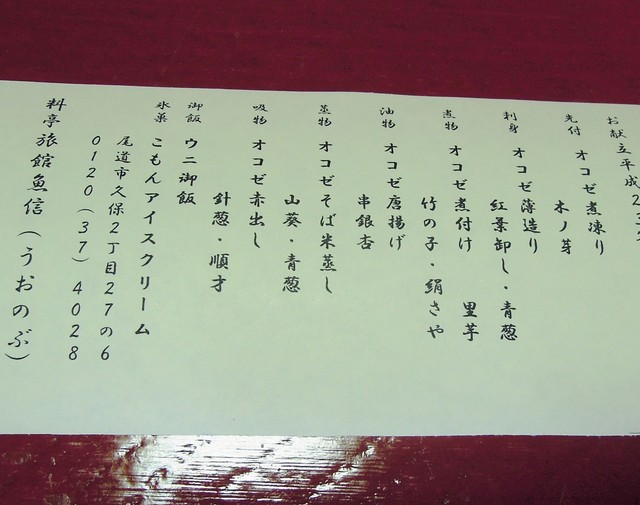 お献立 平成２
先付 オコゼ煮凍り
木ノ芽
刺身 オコゼ薄造り
紅葉卸し・青葱
煮物 オコゼ煮付け 里芋
竹の子・絹さや
油物 オコゼ唐揚げ
串銀杏
蒸物 オコゼそば米蒸し
山葵・青葱
吸物 オコゼ赤出し
針葱・順才
御飯 ウニ御飯
氷菓 こもんアイスクリーム
尾道市久保２丁目２７の６
０１２０（３７）４０２８
料亭旅館魚信（うおのぶ）